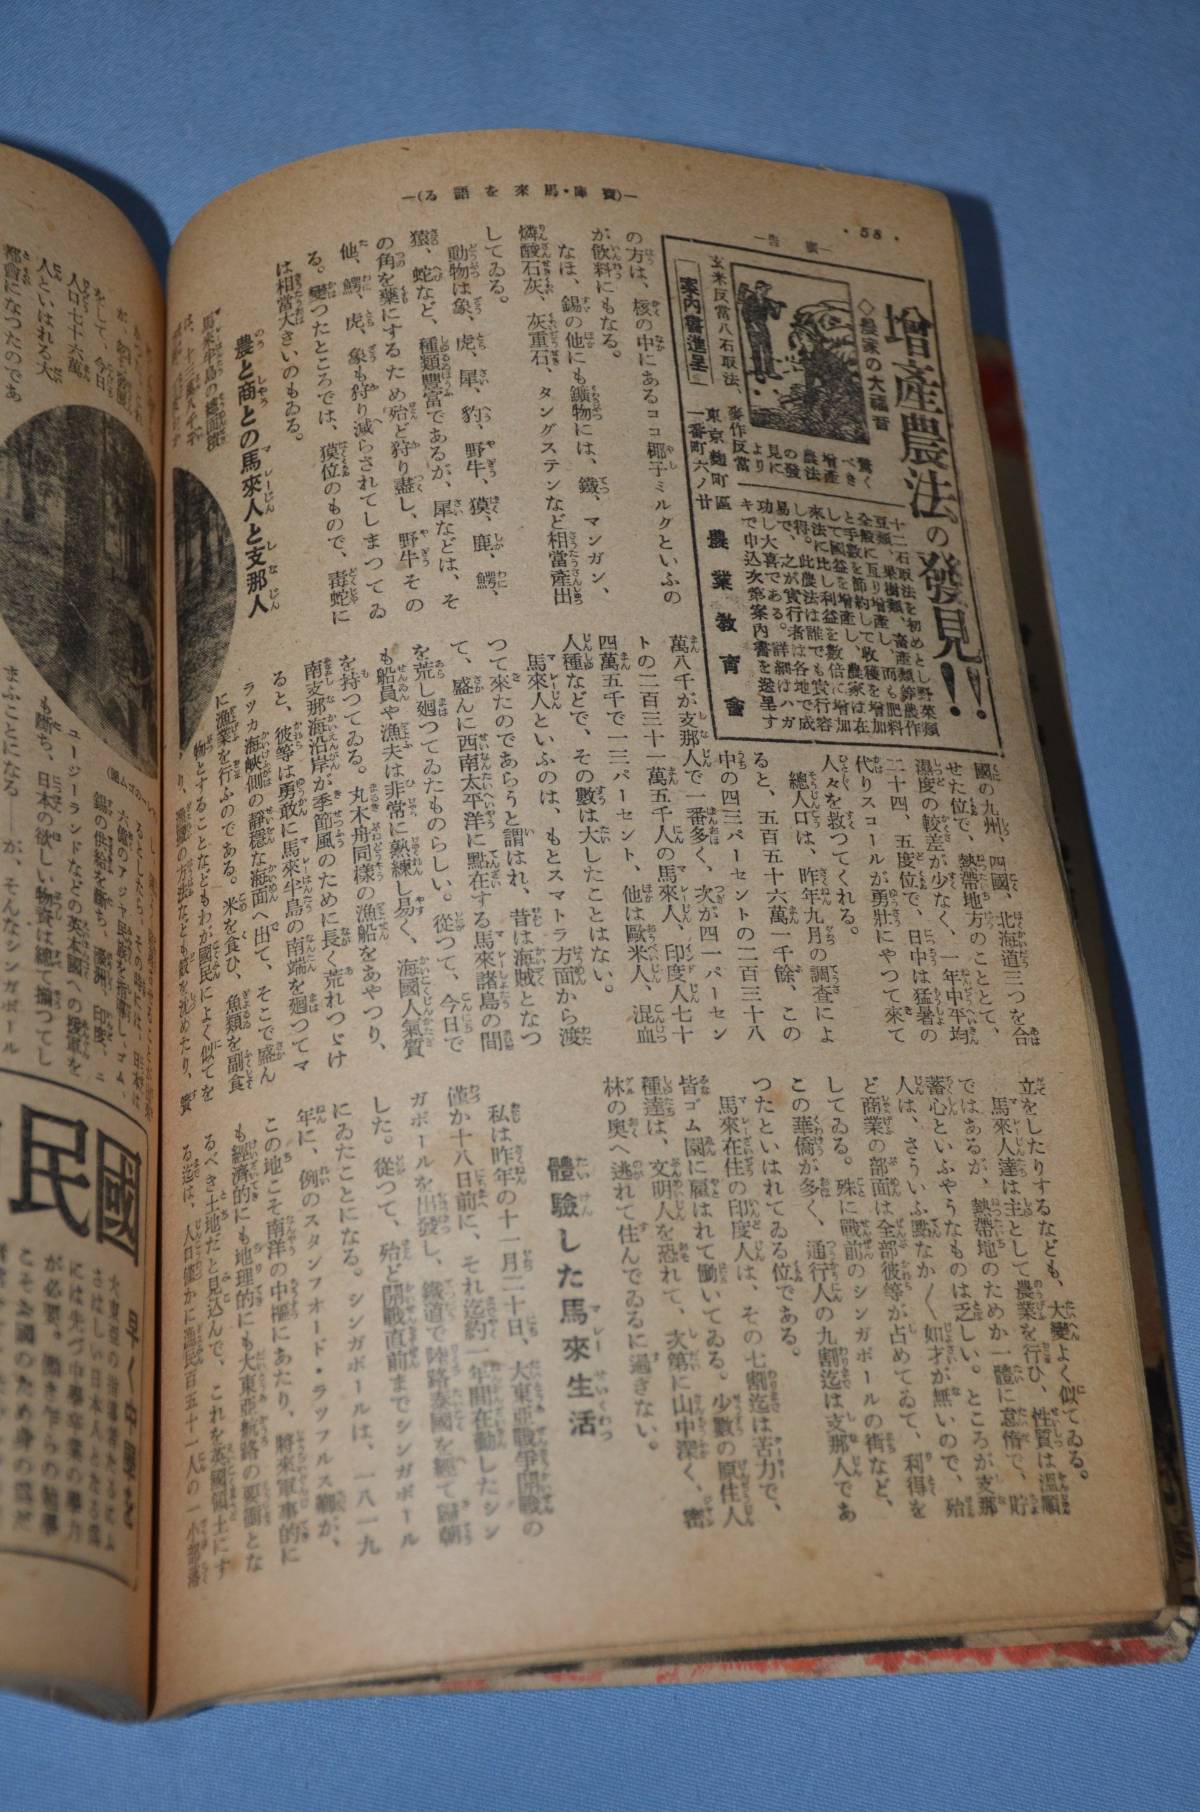 ・58・
―(寶庫・馬來を語る)―
―廣告―
增產農法の發見!!
◇農家の大福音
驚く
べき
增產
農法
の發
見に
より
玄米反當八石取法、
麥作反當
十二石取法を初めとし野菜類
豆類、果樹類、畜產類等農作
全般に亙り增產し、而も肥料
と手數を節約して收穫を增加
して國益を增產し、農家は在
來法に比し利益を數倍に增加
し得。此農法は誰でも實行容
易で、之が實行者は各地で成
功し大喜である。詳細はハガ
キで申込次第案內書を送呈す
案內書進呈
東京麴町區
一番町六ノ廿
農業敎育會
の方は、核の中にあるココ椰子ミルクといふの
が飮料にもなる。
なほ、錫の他にも鑛物には、鐵、マンガン、
燐酸石灰、灰重石、タングステンなど相當產出
してゐる。
動物は象、虎、犀、豹、野牛、獏、鹿、鰐、
猿、蛇など、種類豐富であるが、犀などは、そ
の角を藥にするため殆ど狩り盡し、野牛その
他、鰐、虎、象も狩り減らされてしまつてゐ
る。變つたところでは、獏位のもので、毒蛇に
は相當大きいのもゐる。
農と商との馬來人と支那人
馬來半島の總面積
は、十三萬八千平
國の九州、四國、北海道三つを合
せた位で、熱帶地方のこととて、
濕度の較差が少なく、一年中平均
二十四、五度位で、日中は猛暑の
代りスコールが勇壯にやつて來て
人々を救つてくれる。
總人口は、昨年九月の調査によ
ると、五百五十六萬一千餘、この
中の四三パーセントの二百三十八
萬八千が支那人で一番多く、次が四一パーセン
トの二百三十一萬五千人の馬來人、印度人七十
四萬五千で一三パーセント、他は歐米人、混血
人種などで、その數は大したことはない。
馬來人といふのは、もとスマトラ方面から渡
つて來たのであらうと謂はれ、昔は海賊となつ
て、盛んに西南太平洋に點在する馬來諸島の間
を荒し廻つてゐたものらしい。從つて、今日で
も船員や漁夫は非常に熟練し易く、海國人氣質
を持つてゐる。丸木舟同樣の漁船をあやつり、
南支那海沿岸が季節風のために長く荒れつゞけ
ると、彼等は勇敢に馬來半島の南端を廻つてマ
ラッカ海峽側の靜穩な海面へ出て、そこで盛ん
に漁業を行ふのである。米を食ひ、魚類を副食
物とすることなどもわが國民によく似てを
り、漁國の方法なども數を沈めたり、簀
立をしたりするなども、大變よく似てゐる。
馬來人達は主として農業を行ひ、性質は溫順
ではあるが、熱帶地のためか一體に怠惰で、貯
蓄心といふやうなものは乏しい。ところが支那
人は、さういふ點なかく如才が無いので、殆
ど商業の部面は全部彼等が占めてゐて、利得を
してゐる。殊に戰前のシンガポールの街など、
この華僑が多く、通行人の九割迄は支那人であ
つたといはれてゐる位である。
馬來在住の印度人は、その七割迄は苦力で、
皆ゴム園に雇はれて働いてゐる。少數の原住人
種達は、文明人を恐れて、次第に山中深く、密
林の奧へ逃れて住んでゐるに過ぎない。
體驗した馬來生活
私は昨年の十一月二十日、大東亞戰爭開戰の
僅か十八日前に、それ迄約一年間在勤したシン
ガポールを出發し、鐵道で陸路泰國を經て歸朝
した。從つて、殆ど開戰直前までシンガポール
にゐたことになる。シンガポールは、一八一九
年に、例のスタンフオード・ラッフルス卿が、
この地こそ南洋の中樞にあたり、將來軍事的に
も經濟的にも地理的にも大東亞航路の要衝とな
るべき土地だと見込んで、これを英國領土にす
る迄は、人口僅かに漁民百五十一人の一小部落
をして、今日
人口七十六萬
人といはれる大
都會になつたのであ
錫の供給を斷ち、濠洲、印度、ニ
ュージーランドなどの英本國への援軍を
も斷ち、日本の欲しい物資は總て揃つてし
まふことになる――が、そんなシンガポール
國民
早く中學を
大東亞の指導者たるにふ
さはしい日本人となる爲
には先づ中學卒業の學力
が必要。働き乍らの勉學
こそお國のため身の爲だ